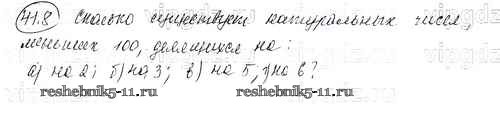 41.8 Сколько существует натуральных чисел,
меньших 100, делящихся на:
а) на 2; б) на 3; в) на 5, г) на 6?
reshebnik5-11.ru reshebnik5-11.ru